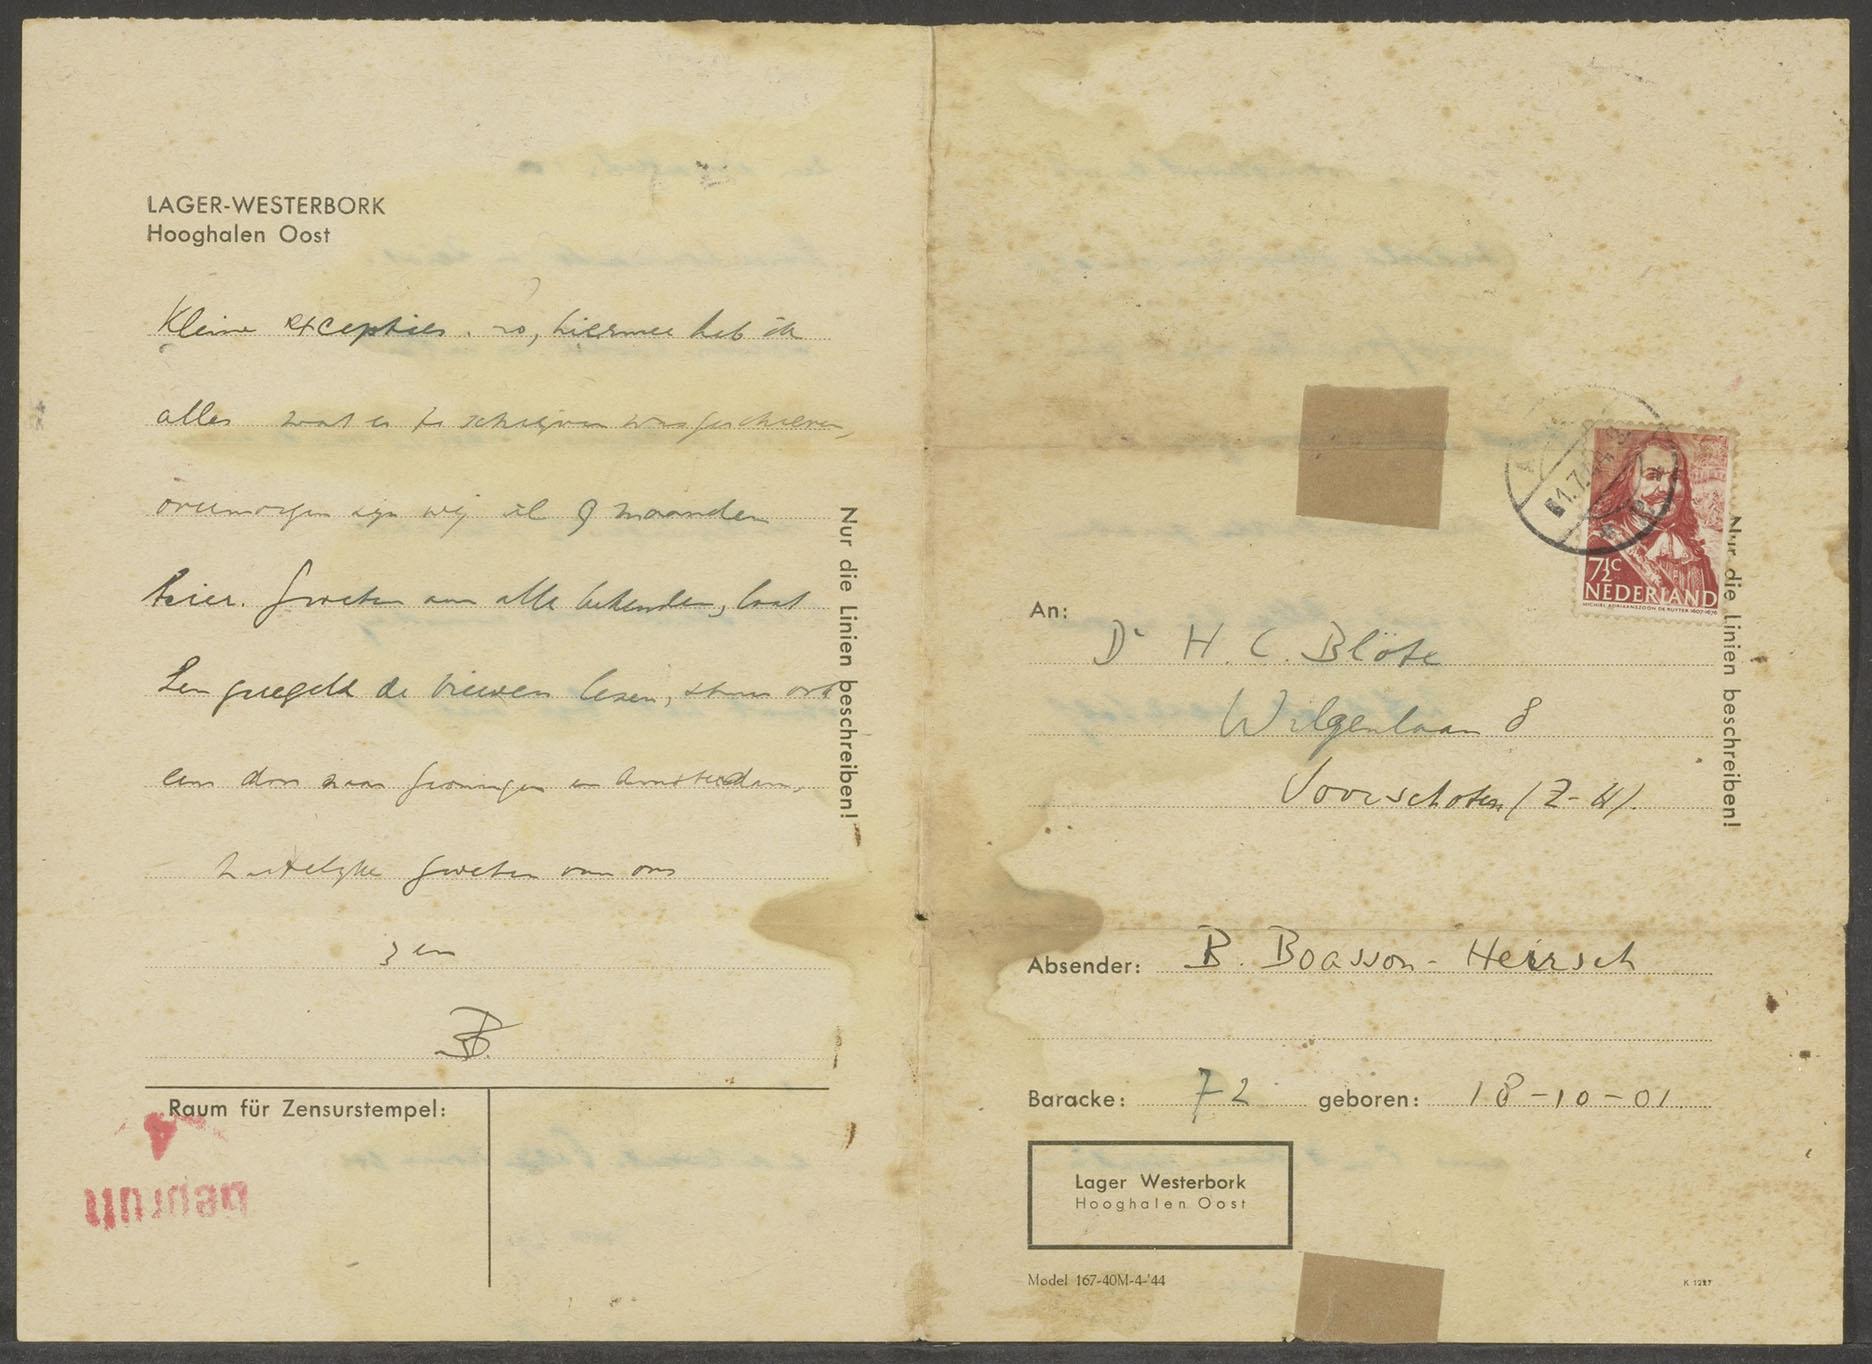 LAGER-WESTERBORK
Hooghalen Oost
Kleine excepties. Zo, hiermee heb ik
alles wat er te schrijven was geschreven,
overmorgen zijn wij al 9 maanden
hier. Groeten aan alle bekenden, laat
Len geregeld de brieven lezen, stuur ook
eens door naar Groningen en Amsterdam,
Hartelijke groeten van ons
3 en
B.
Nur die Linien beschreiben!
Raum für Zensurstempel:
4
geprüft
7½c
NEDERLAND
MICHIEL ADRIAANSZOON DE RUYTER 1607-1676
An:
Dr H. C. Blöte
Wilgenlaan 8
Voorschoten (Z-H).
Nur die Linien beschreiben!
Absender: B. Boasson-Heirsch
Baracke: 72 geboren: 18-10-01
Lager Westerbork
Hooghalen Oost
Model 167-40M-4-'44
K 1227